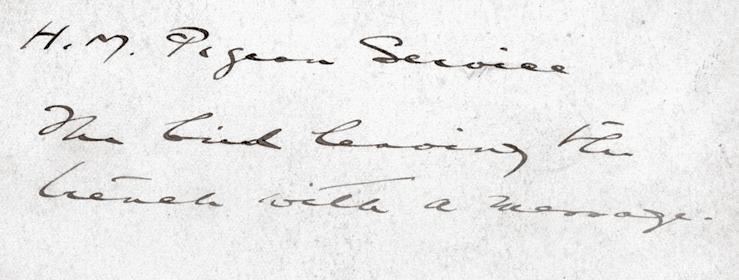 H.M. Pigeon Service
The bird leaving the
trench with a message.